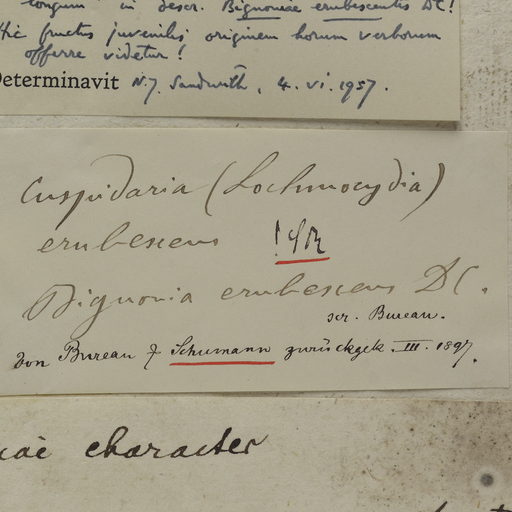 longum" in descr. Bignoniae erubescentis DC!
Hic fructus juvenilis originem horum verborum
offerre videtur!
Determinavit N.Y. Sandwith, 4. vi. 1957.
Cuspidaria (Lochmocydia)
erubescens !
Bignonia erubescens DC.
scr. Bureau.
Von Bureau f Schumann zurückgek. III. 1897.
character